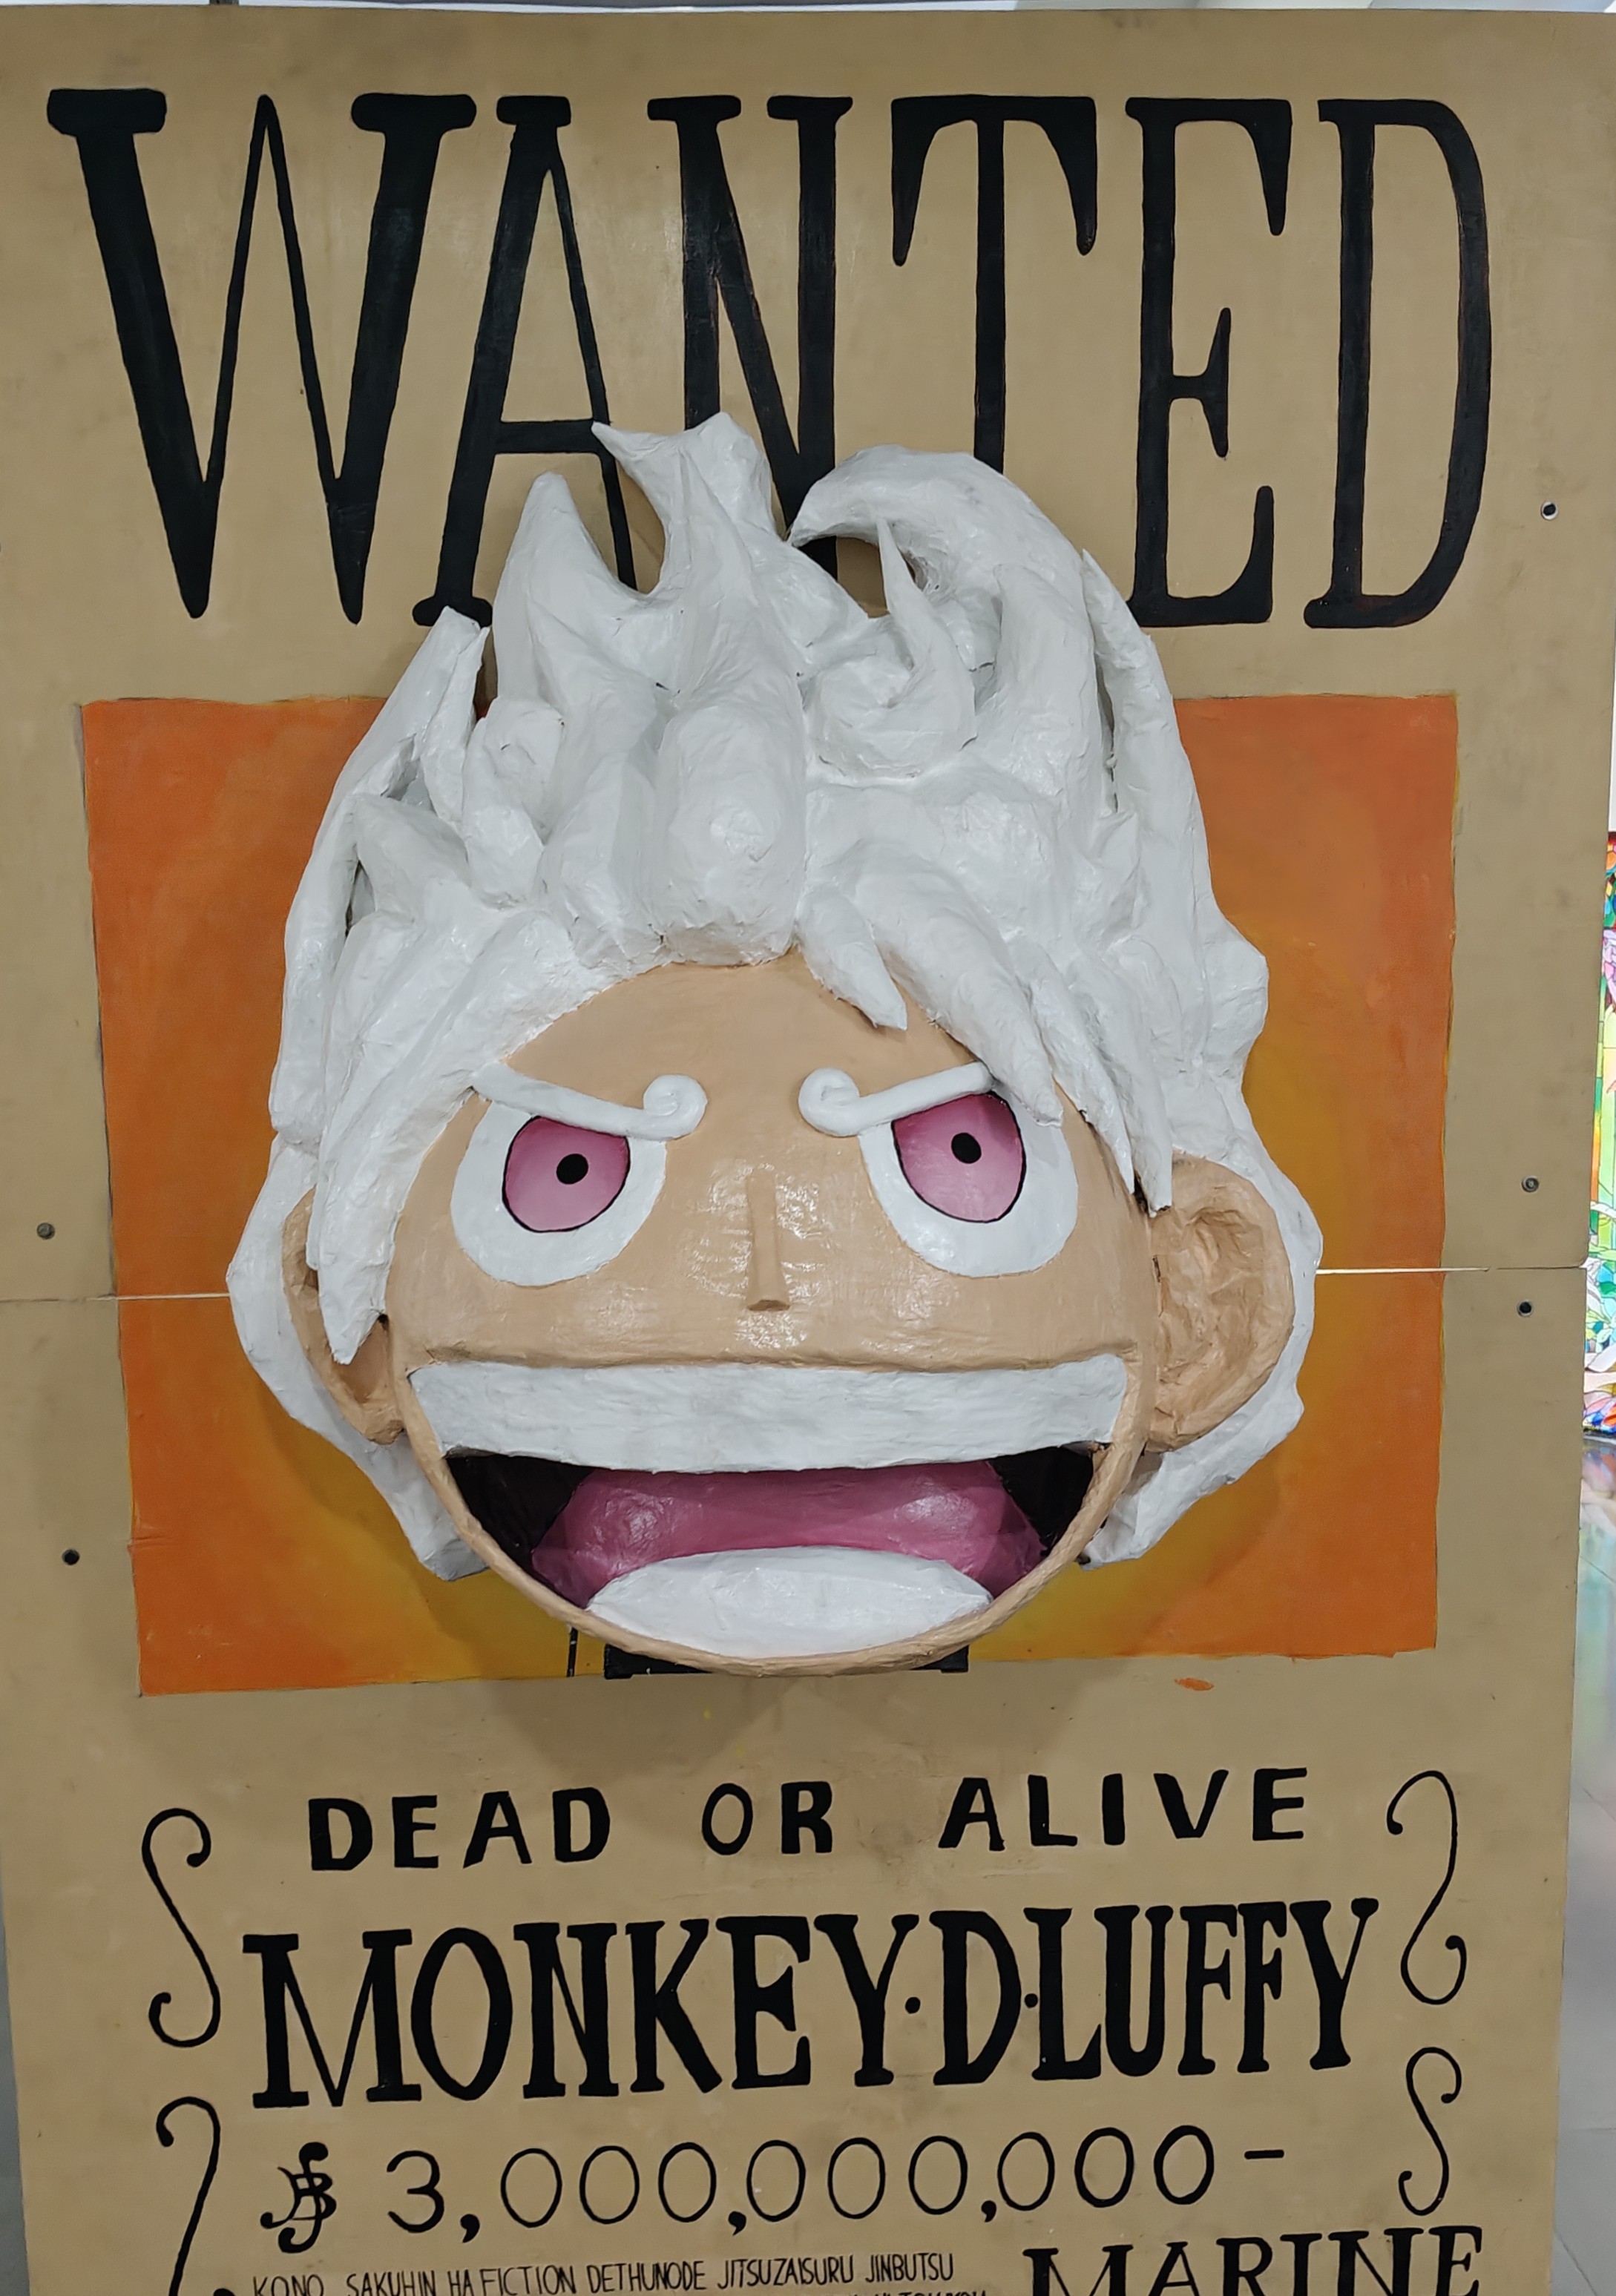 WANTED
DEAD OR ALIVE
MONKEY·D·LUFFY
฿ 3,000,000,000-
KONO SAKUHIN HA FICTION DETHUNODE JITSUZAISURU JINBUTSU
MARINE